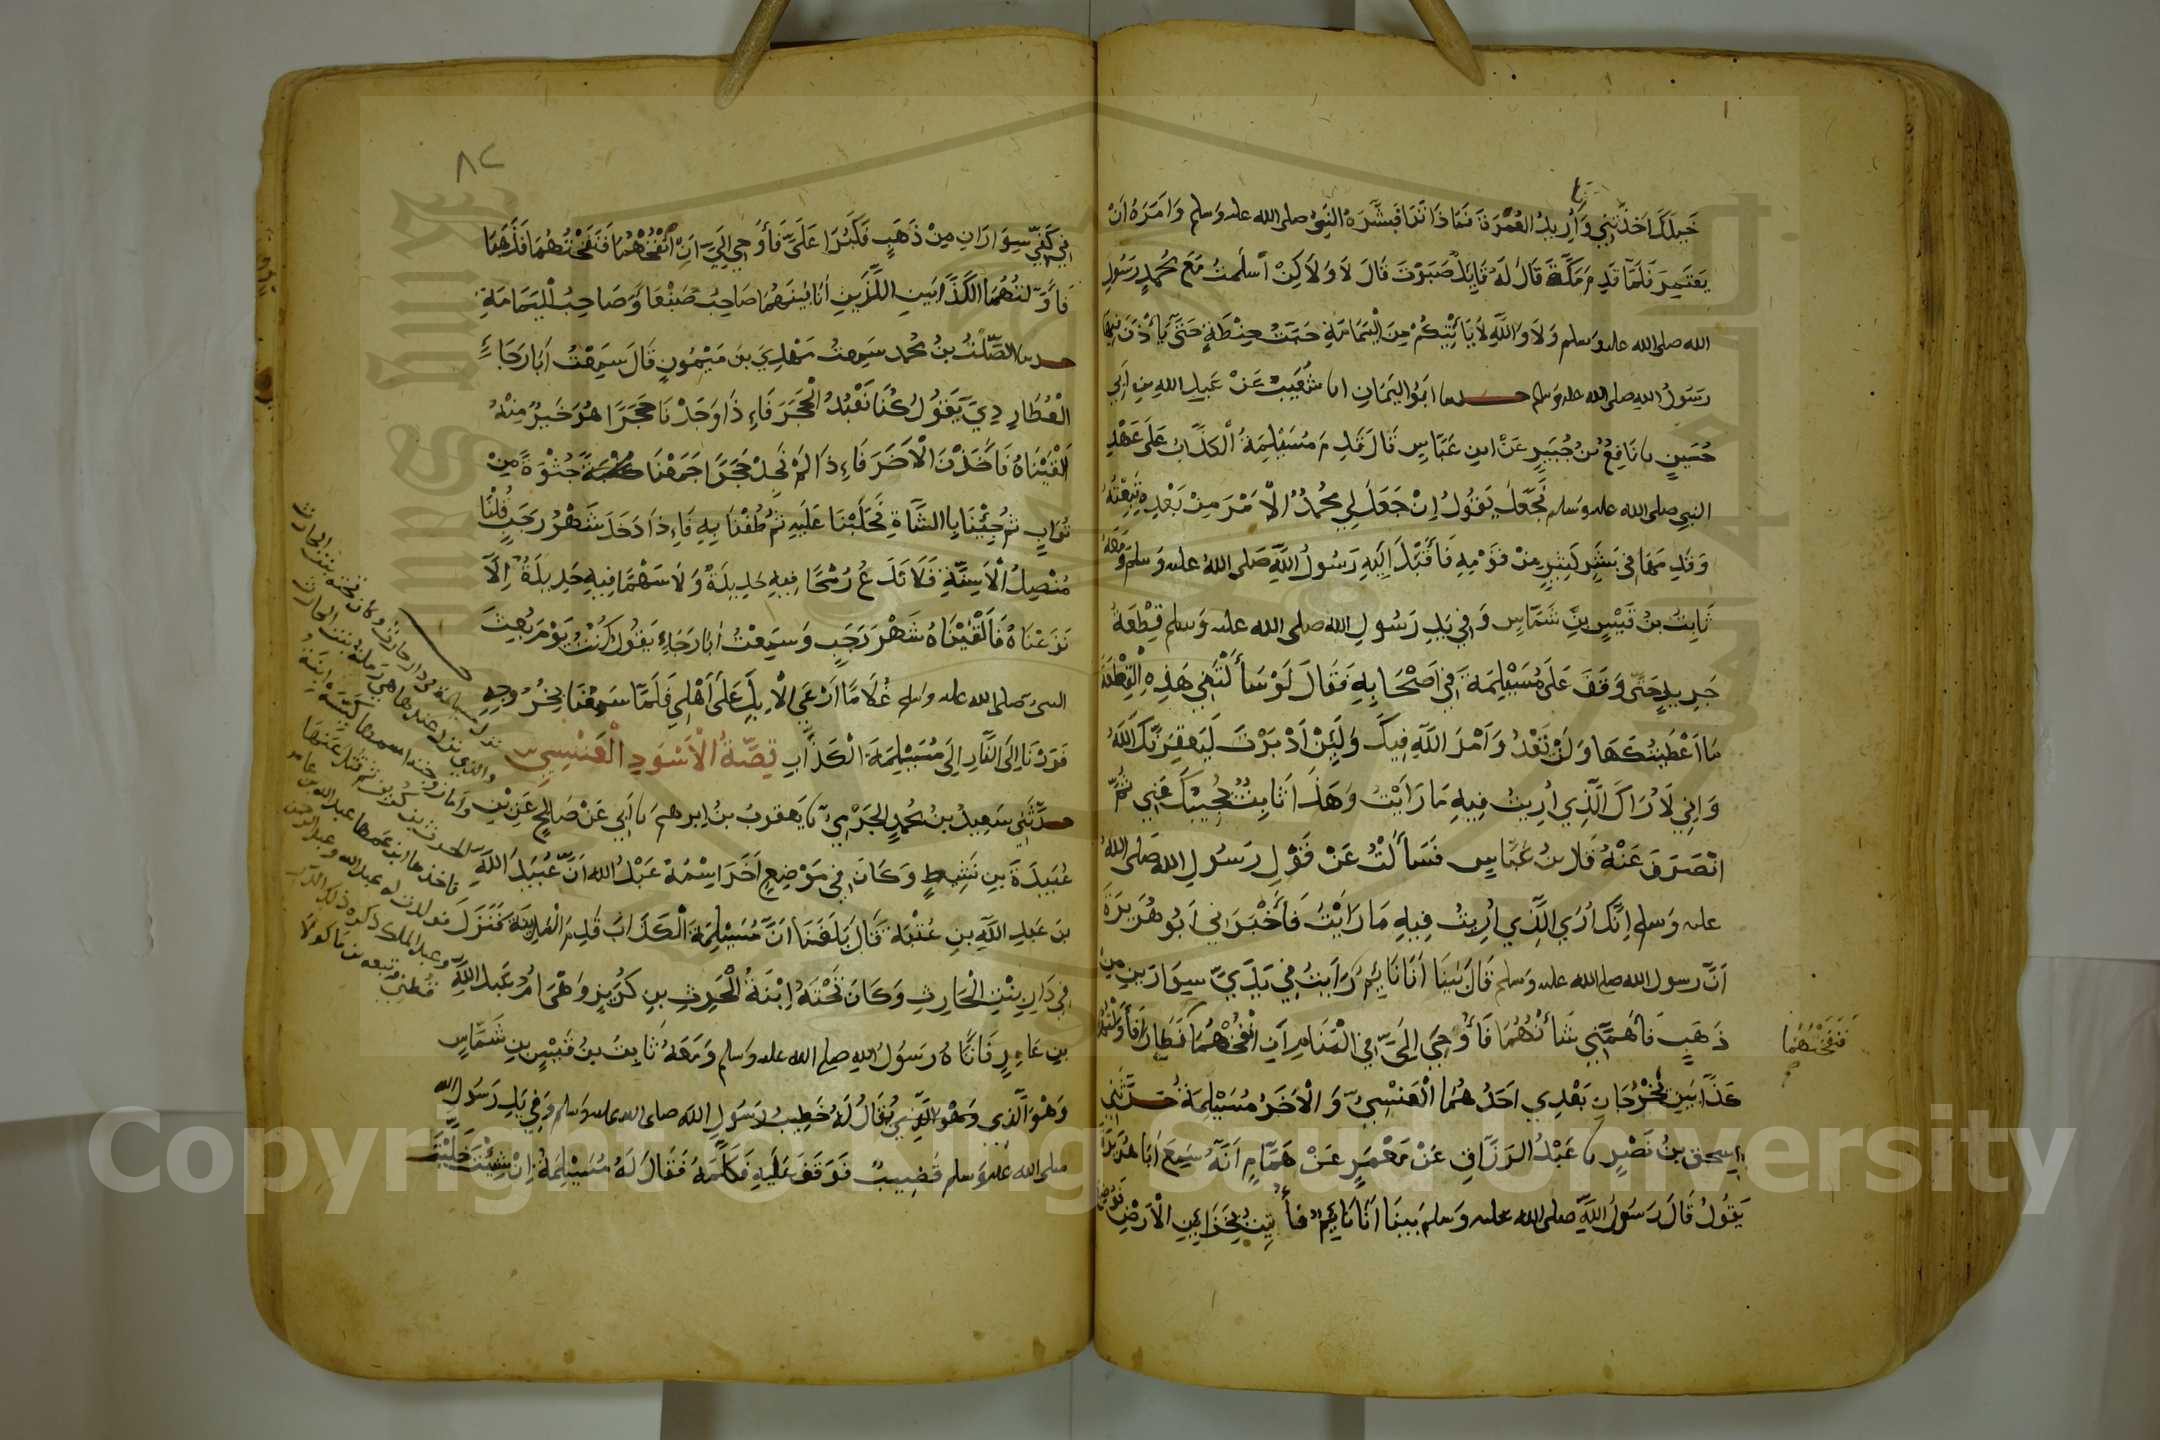 خَيلَكَ اَخَذَتْنِي وَاُرِيدُ العُمْرَةَ فَمَاذَا تَرَى فَبَشَّرَهُ النَبِيُّ صلى الله عليه وسلم وَاَمَرَهُ اَنْ
يَعْتَمِرَ فَلَمَّا قَدِمَ مَكَّةَ قَالَ لَهُ قَايِلٌ صَبَوْتَ قَالَ لَا وَلَاكِنْ اَسْلَمْتُ مَعَ مُحمدٍ رَسُولِ
الله صلى الله عليه وسلم وَلَا وَاللَّهِ لَا يَأتِيكُمْ مِنَ الْيَمَامَةِ حَبَّةُ حِنْطَةٍ حَتَّى يَأْذَنَ فِيهَا
رَسُولُ اللهِ صلى الله عليه وسلم حدثنا ابَوُ اليَمَانِ انا شُعَيبٌ عَنْ عَبدِ اللهِ بنِ اَبِي
حُسَينٍ نا نَافِعُ بنُ جُبَيرٍ عَنِ ابنِ عَبَّاسٍ قَالَ قَدِمَ مُسَيْلِمَةُ الْكَذَّابُ عَلَى عَهْدِ
النبيِ صلى الله عليه وسلم فَجَعَلَ يَقُولُ اِنْ جَعَلَ لِي مُحمدٌ الْاَمْرَ مِنْ بَعْدِهِ تَبِعْتُهُ
وَقَدِمَهَا فِي بَشَرٍ كَثِيرٍ مِنْ قَوْمِهِ فَأَقْبَلَ اِلَيهِ رَسُولُ اللَّهِ صَلى اللهُ عليه وَسلم وَمَعَهُ
ثَابِتُ بنُ قَيْسِ بنِ شَمَّاسٍ وَفِي يَدِ رَسُولِ الله صلى الله عليه وَسلم قِطْعَةُ
جَرِيدٍ حَتَّى وَقَفَ عَلَى مُسَيْلِمَةَ فِي اَصْحَابِهِ فَقَالَ لَوْ سَأَلْتَنِي هَذِهِ الْقِطْعَةَ
مَا اَعْطَيتُكَهَا وَلَنْ تَعْدُ وَ اَمْرَ اللَّهِ فِيكَ وَلَئِنْ اَدْبَرْتَ لَيَعقِرَنَّكَ اللَّهُ
وَاِنِي لَاُرَاكَ الَّذِي اُرِيتُ فِيهِ مَا رَاَيْتُ وَهَذَا ثَابِتٌ يُجِيبُكَ عَنِي ثُمَّ
انْصَرَفَ عَنْهُ قَالَ بنُ عَبَّاسٍ فَسَأَلْتُ عَنْ قَوْلِ رَسُولِ الله صَلى اللهُ
عليه وَسلم اِنَّكَ اُرَى الَّذِي اُرِيتُ فِيهِ مَا رَاَيْتُ فَأَخْبَرَنِي اَبُو هُرَيرَةَ
اَنَّ رسول الله صلى الله عليه وَسلم قَالَ بَينَا اَنَا نَايِمٌ رَاَيتُ فِي يَدَيَّ سِوَارَينِ مِنْ
ذَهَبٍ فَاَهَمَّنِي شَأنُهُمَا فَأُوحِيَ اِلَيَّ فِي الْمَنَامِ اَنِ انْفُخْهُمَا فَطَارَا فَأَوَّلْتُهُمَا
فَنَفَخْتُهُمَا
كَذَّابَينِ يَخْرُجَانِ بَعْدِي اَحَدُهُمَا الْعَنْسِيُّ وَالْاَخَرُ مُسَيْلِمَةُ حَدَّثَنِي
اِسحقُ بنُ نَصْرٍ نا عَبْدُ الرَزَّاقِ عَنْ مَعْمَرٍ عَنْ هَمَّامٍ اَنَّهُ سَمِعَ اَبَا هُرَيرَةَ
يَقُولُ قَالَ رَسُولُ اللَّهِ صلى الله عليه وَسلم بَينَا اَنَا نَايِمٌ فَأُتِيتُ بِخَزَايِنِ الْاَرْضِ فَوُضِعَ
٨٢
فِي كَفِّي سِوَارَانِ مِنْ ذَهَبٍ فَكَبُرَا عَلَيَّ فَأُوحِيَ اِلَيَّ اَنِ انْفُخْهُمَا فَنَفَخْتُهُمَا فَذَهَبَا
فَاَوَّلتُهُمَا الكَذَّابَينِ اللَّذَينِ اَنَا بَينَهُمَا صَاحِبَ صَنْعَا وَصَاحِبَ الْيَمَامَةِ
حدثنا الصَّلْتُ بنُ مُحمد سَمِعتُ مَهْدِيَّ بنَ مَيْمُونٍ قَالَ سَمِعْتُ اَبَا رَجَاءٍ
الْعُطَارِدِيَّ يَقُولُ كُنَّا نَعْبُدُ الْحَجَرَ فَاِذَا وَجَدْنَا حَجَرًا هُوَ خَيْرٌ مِنْهُ
اَلْقَيْنَاهُ فَأَخَذْنَا الْاَخَرَ فَاِذَا لَمْ نَجِدْ حَجَرًا جَمَعْنَا جُثْوَةً مِنْ
تُرَابٍ ثُمَّ جِئْنَا بِالشَّاةِ فَحَلَبْنَا عَلَيهِ ثُمَّ طُفْنَا بِهِ فَاِذَا دَخَلَ شَهْرُ رَجَبٍ قُلْنَا
مُنْصِلُ الْاَسِنَّةِ فَلَا نَدَعُ رُمْحًا فِيهِ حَدِيدَةٌ وَلَا سَهْمًا فِيهِ حَدِيدَةٌ اِلَّا
نَزَعْنَاهُ فَأَلْقَيْنَاهُ شَهْرَ رَجَبٍ وَسَمِعْتُ اَبَا رَجَاءٍ يَقُولُ كُنْتُ يَوْمَ بُعِثَ
النبيُ صلى الله عليه وسلم غُلَامًا اَرْعَى الْاِبِلَ عَلَى اَهْلِي فَلَمَّا سَمِعْنَا بِخُرُوجِهِ
فَرَرْنَا اِلَى النَّارِ اِلَى مُسَيْلِمَةَ الْكَذَّابِ قِصَّةُ الْاَسْوَدِ الْعَنْسِيِ
حدَّثَنِي سَعِيدُ بنُ مُحمدٍ الْجَرْمِيُّ نا يَعقوبُ بنُ اِبرهِيمَ نا اَبِي عَنْ صَالِحٍ عَنِ بْنِ
عُبَيدَةَ بنِ نَشِيطٍ وَكَانَ فِي مَوْضِعٍ اَخَرَ اسْمُهُ عَبْدُ الله اَنَّ عُبَيدَ اللهِ
بنَ عَبدِ اللَّهِ بنِ عُتْبَةَ قَالَ بَلَغَنَا اَنَّ مُسَيْلِمَةَ الْكَذَّابَ قَدِمَ الْمَدِينَةَ فَنَزَلَ
فِي دَارِ بِنْتِ الْحَارِثِ وَكَانَ تَحْتَهُ اِبْنَةُ الْحَرِثِ بنِ كُرَيزٍ وَهْيَ اُمُّ عَبدِ اللَّهِ
بنِ عَامِرٍ فَاتَاهُ رَسُولُ اللهِ صلى الله عليه وَسلم وَمَعَهُ ثَابِتُ بنُ قَيْسِ بنِ شَمَّاسٍ
وَهْوَ الَّذِي وَهْوَ الَّذِي يُقَالُ لَهُ خَطِيبُ رَسُولِ اللهِ صلى الله عليه وسلم وَفِي يَدِ رَسُولِ الله
صلى الله عليه وَسلم قَضِيبٌ فَوَقَفَ عَلَيهِ فَكَلَّمَهُ فَقَالَ لَهُ مُسَيْلِمَةُ اِنْ شِئْتَ خَلَّيْتَ